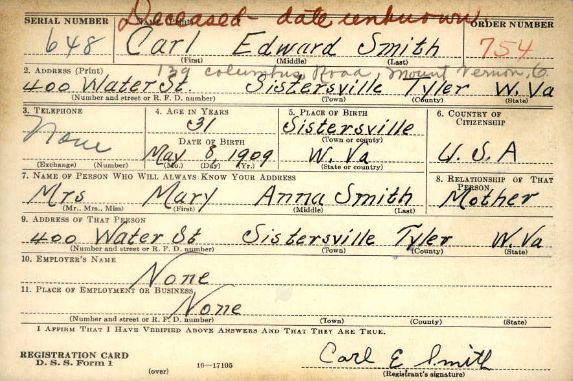 Deceased - date unknown
SERIAL NUMBER 1. NAME (Print) ORDER NUMBER
648 Carl Edward Smith 754
(First) (Middle) (Last)
139 Columbus Road, Mount Vernon, O.
2. ADDRESS (Print)
400 Water St. Sistersville Tyler W. Va
(Number and street or R. F. D. number) (Town) (County) (State)
3. TELEPHONE 4. AGE IN YEARS 5. PLACE OF BIRTH 6. COUNTRY OF CITIZENSHIP
None 31 Sistersville U.S.A
(Town or county)
DATE OF BIRTH
May 8, 1909 W. Va
(Exchange) (Number) (Mo.) (Day) (Yr.) (State or country)
7. NAME OF PERSON WHO WILL ALWAYS KNOW YOUR ADDRESS 8. RELATIONSHIP OF THAT PERSON
Mrs Mary Anna Smith Mother
(Mr., Mrs., Miss) (First) (Middle) (Last)
9. ADDRESS OF THAT PERSON
400 Water St Sistersville Tyler W. Va
(Number and street or R. F. D. number) (Town) (County) (State)
10. EMPLOYER'S NAME
None
11. PLACE OF EMPLOYMENT OR BUSINESS
None
(Number and street or R. F. D. number) (Town) (County) (State)
I AFFIRM THAT I HAVE VERIFIED ABOVE ANSWERS AND THAT THEY ARE TRUE.
REGISTRATION CARD
D. S. S. Form 1 (over) 16-17105 Carl E Smith
(Registrant's signature)